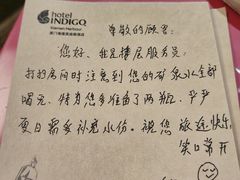 hotel
INDIGO
Xiamen Harbour
厦门海港英迪格酒店
尊敬的顾客：
您好，我是楼层服务员，
打扫房间时注意到您的矿泉水全部
喝完，特为您多准备了两瓶，
夏日需多补充水份。祝您旅途快乐
笑口常开